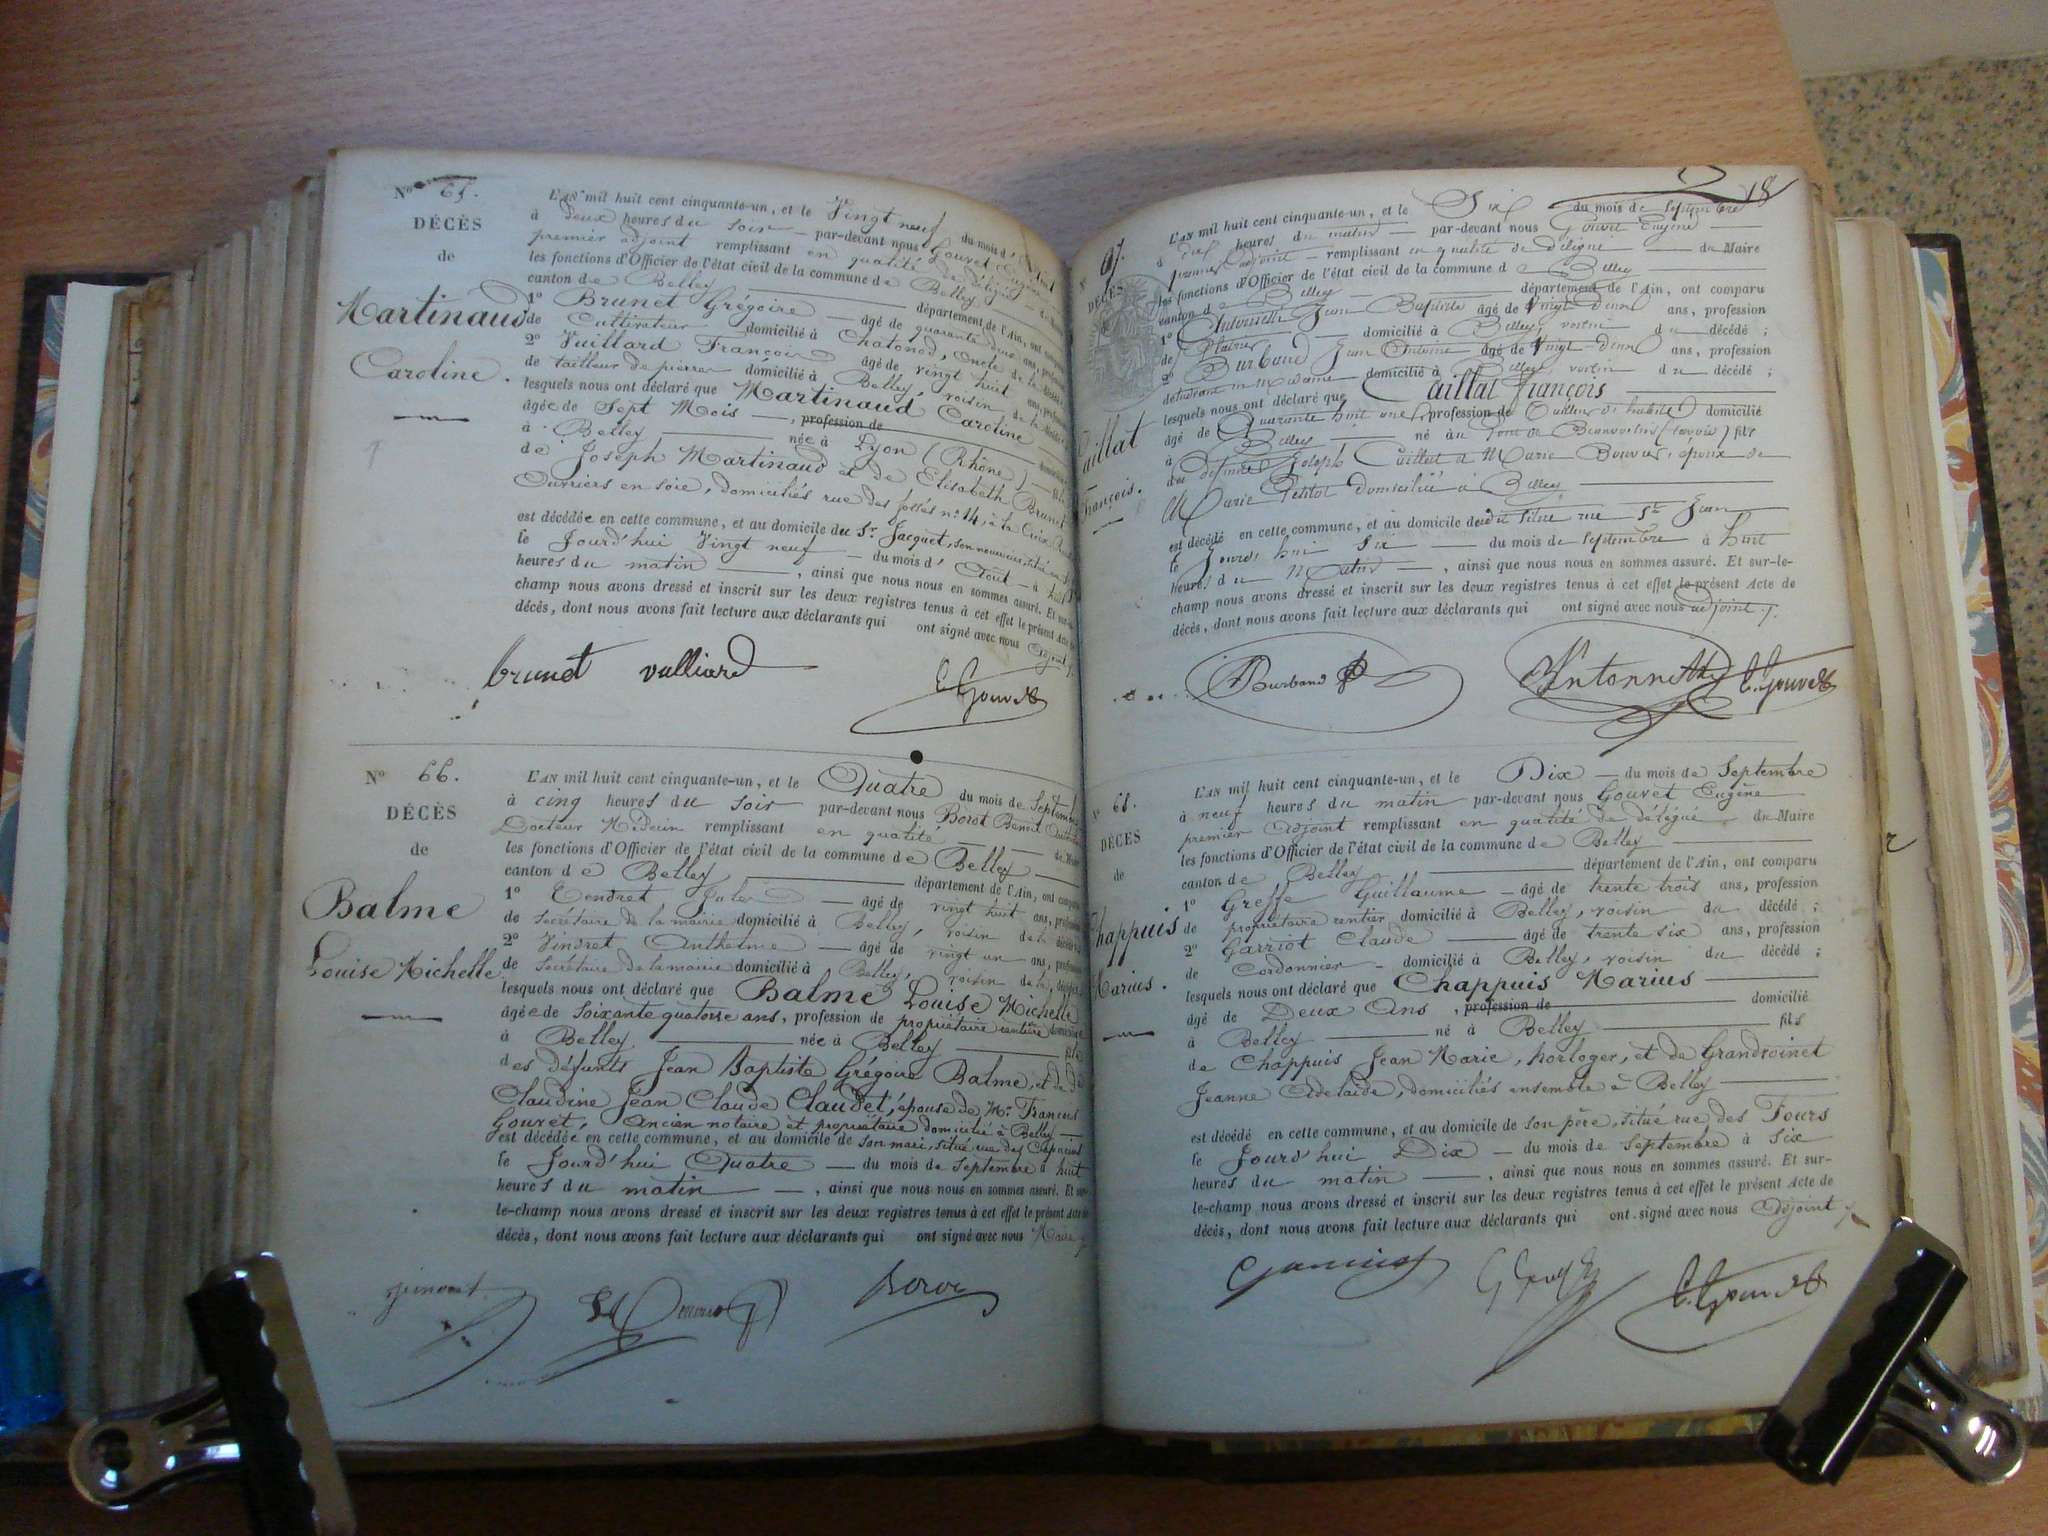 N° 65.
DÉCÈS
de
Martinaud
Caroline.
L'AN mil huit cent cinquante-un, et le Vingt neuf du mois d'Août
à Deux heures du soir — par-devant nous Gouvet Eugène
premier adjoint remplissant en qualité de délégué du Maire
les fonctions d'Officier de l'état civil de la commune de Belley
canton de Belley département de l'Ain, ont comparu
1° Brunet Grégoire — âgé de quarante deux ans, profession
de Cultivateur domicilié à Chatonod, oncle de la décédée
2° Vuillard François âgé de vingt huit ans, profession
de tailleur de pierres domicilié à Belley, voisin de la décédée
lesquels nous ont déclaré que Martinaud Caroline
âgée de Sept Mois —, profession de domiciliée
à Belley née à Lyon (Rhône) — fille
de Joseph Martinaud et de Elisabeth Brunet
Ouvriers en soie, domiciliés rue des fossés n° 14, à la Croix
est décédée en cette commune, et au domicile du Sr Jacquet, son nourricier, situé
le Jourd'hui Vingt neuf — du mois d'Août — à huit
heures du matin —, ainsi que nous nous en sommes assuré. Et sur-le-
champ nous avons dressé et inscrit sur les deux registres tenus à cet effet le présent Acte de
décès, dont nous avons fait lecture aux déclarants qui ont signé avec nous adjoint
brunet vulliard E. Gouvet
N° 66.
DÉCÈS
de
Balme
Louise Michelle
L'AN mil huit cent cinquante-un, et le Quatre du mois de Septembre
à cinq heures du soir par-devant nous Borot Benoit
Docteur Médecin remplissant en qualité de Maire
les fonctions d'Officier de l'état civil de la commune de Belley
canton de Belley, département de l'Ain, ont comparu
1° Tendret Jules — âgé de vingt huit ans, profession
de Secrétaire de la mairie domicilié à Belley, voisin de la décédée
2° Vindret Anthelme — âgé de vingt un ans, profession
de Secrétaire de la mairie domicilié à Belley, voisin de la décédée
lesquels nous ont déclaré que Balme Louise Michelle
âgée de Soixante quatorze ans, profession de propriétaire rentière domiciliée
à Belley née à Belley fille
des défunts Jean Baptiste Grégoire Balme, et de
Claudine Jean Claude Claudet, épouse de Mr. François
Gouvet, Ancien notaire et propriétaire domicilié à Belley
est décédée en cette commune, et au domicile de son mari, situé rue des Capucins
le Jourd'hui Quatre — du mois de Septembre à huit
heures du matin —, ainsi que nous nous en sommes assuré. Et sur-
le-champ nous avons dressé et inscrit sur les deux registres tenus à cet effet le présent Acte de
décès, dont nous avons fait lecture aux déclarants qui ont signé avec nous Maire
Borot
18
N° 67.
DÉCÈS
de
Caillat
François.
L'AN mil huit cent cinquante-un, et le Six du mois de Septembre
à dix heures du matin — par-devant nous Gouvet Eugène
premier adjoint — remplissant en qualité de délégué du Maire
les fonctions d'Officier de l'état civil de la commune de Belley
canton de Belley département de l'Ain, ont comparu
1° Antonnetti Jean Baptiste âgé de Vingt deux ans, profession
de Platrier — domicilié à Belley, voisin du décédé ;
2° Burband Jean Antoine âgé de Vingt-deux ans, profession
domicilié à Belley voisin du décédé ;
lesquels nous ont déclaré que Caillat François
âgé de Quarante huit ans, profession de Tailleur d'habits domicilié
à Belley né au Pont de Beauvoisin (Savoie) fils
des défunts Joseph Caillat et Marie Bouvier, époux de
Marie Petitot domiciliée à Belley
est décédé en cette commune, et au domicile situé rue St Jean
le Jourd'hui Six du mois de Septembre à huit
heures du Matin —, ainsi que nous nous en sommes assuré. Et sur-le-
champ nous avons dressé et inscrit sur les deux registres tenus à cet effet le présent Acte de
décès, dont nous avons fait lecture aux déclarants qui ont signé avec nous adjoint
Burband Antonnetti E. Gouvet
N° 68.
DÉCÈS
de
Chappuis
Marius.
L'AN mil huit cent cinquante-un, et le Dix — du mois de Septembre
à neuf heures du matin par-devant nous Gouvet Eugène
premier Adjoint remplissant en qualité de délégué du Maire
les fonctions d'Officier de l'état civil de la commune de Belley
canton de Belley département de l'Ain, ont comparu
1° Greffe Guillaume — âgé de trente trois ans, profession
de propriétaire rentier domicilié à Belley, voisin du décédé ;
2° Garriot Claude âgé de trente six ans, profession
de Cordonnier — domicilié à Belley, voisin du décédé ;
lesquels nous ont déclaré que Chappuis Marius
âgé de Deux Ans, profession de domicilié
à Belley né à Belley fils
de Chappuis Jean Marie, horloger, et de Grandvoinet
Jeanne Adelaïde, domiciliés ensemble à Belley
est décédé en cette commune, et au domicile de son père, situé rue des Fours
le Jourd'hui Dix — du mois de Septembre à Six
heures du matin —, ainsi que nous nous en sommes assuré. Et sur-
le-champ nous avons dressé et inscrit sur les deux registres tenus à cet effet le présent Acte de
décès, dont nous avons fait lecture aux déclarants qui ont signé avec nous Adjoint
E. Gouvet